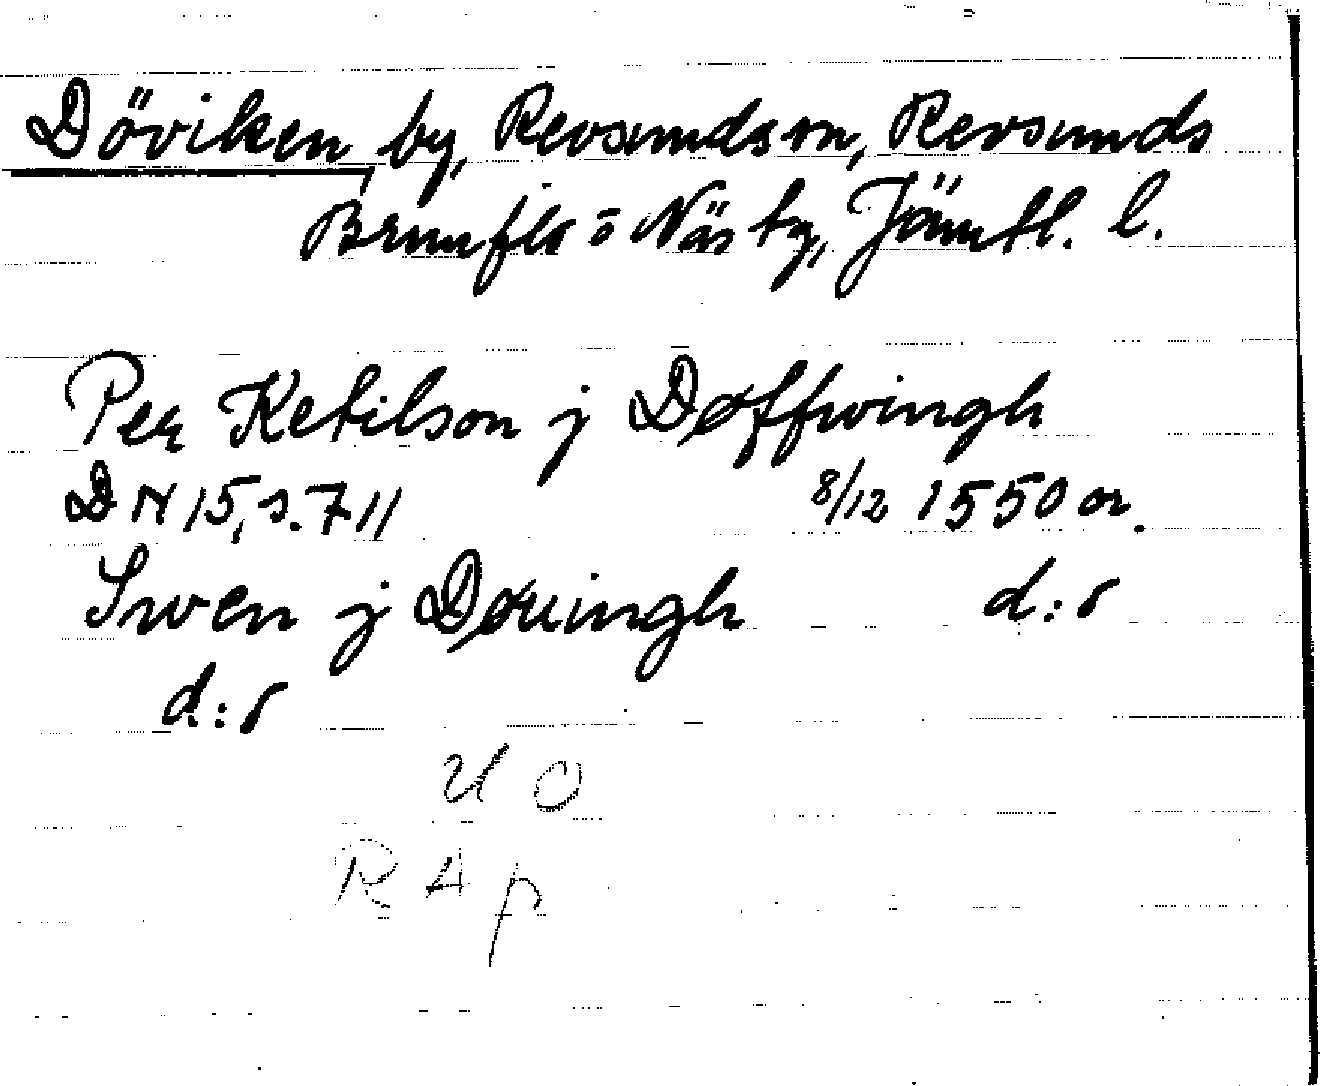 Döviken, by, Revsunds sn, Revsunds
Brunflo o Näs tg, Jämtl. l.
Per Ketilson j Døffwingh
DN 15, s. 711 8/12 1550 or.
Swen j Døuingh d:o
d:o
U O
R A p